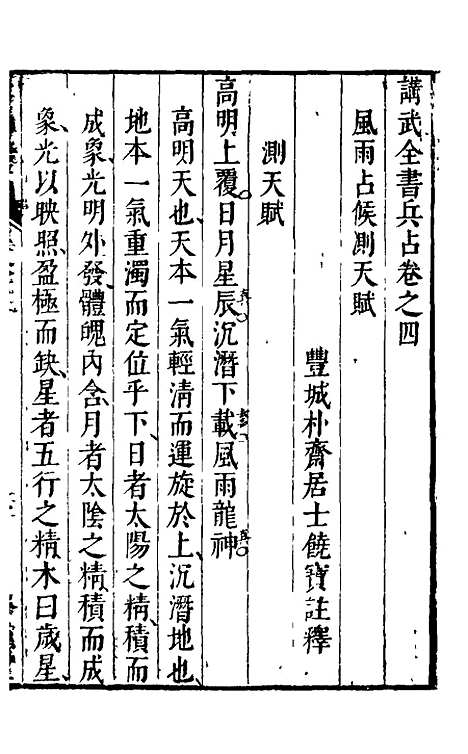 講武全書兵占卷之四
風雨占候測天賦
豐城朴齋居士饒寶註釋
測天賦
高明上覆日月星辰沉潛下載風雨龍神
高明天也天本一氣輕清而運旋於上沉潛地也
地本一氣重濁而定位乎下日者太陽之精積而
成象光明外發體魄內含月者太陰之精積而成
象光以映照盈極而缺星者五行之精木曰歲星